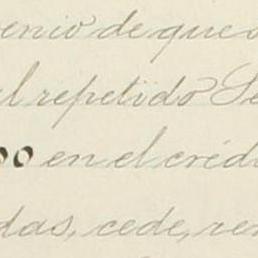 enio de que
el repetido Se
00 en el crédi
das, cede, ren